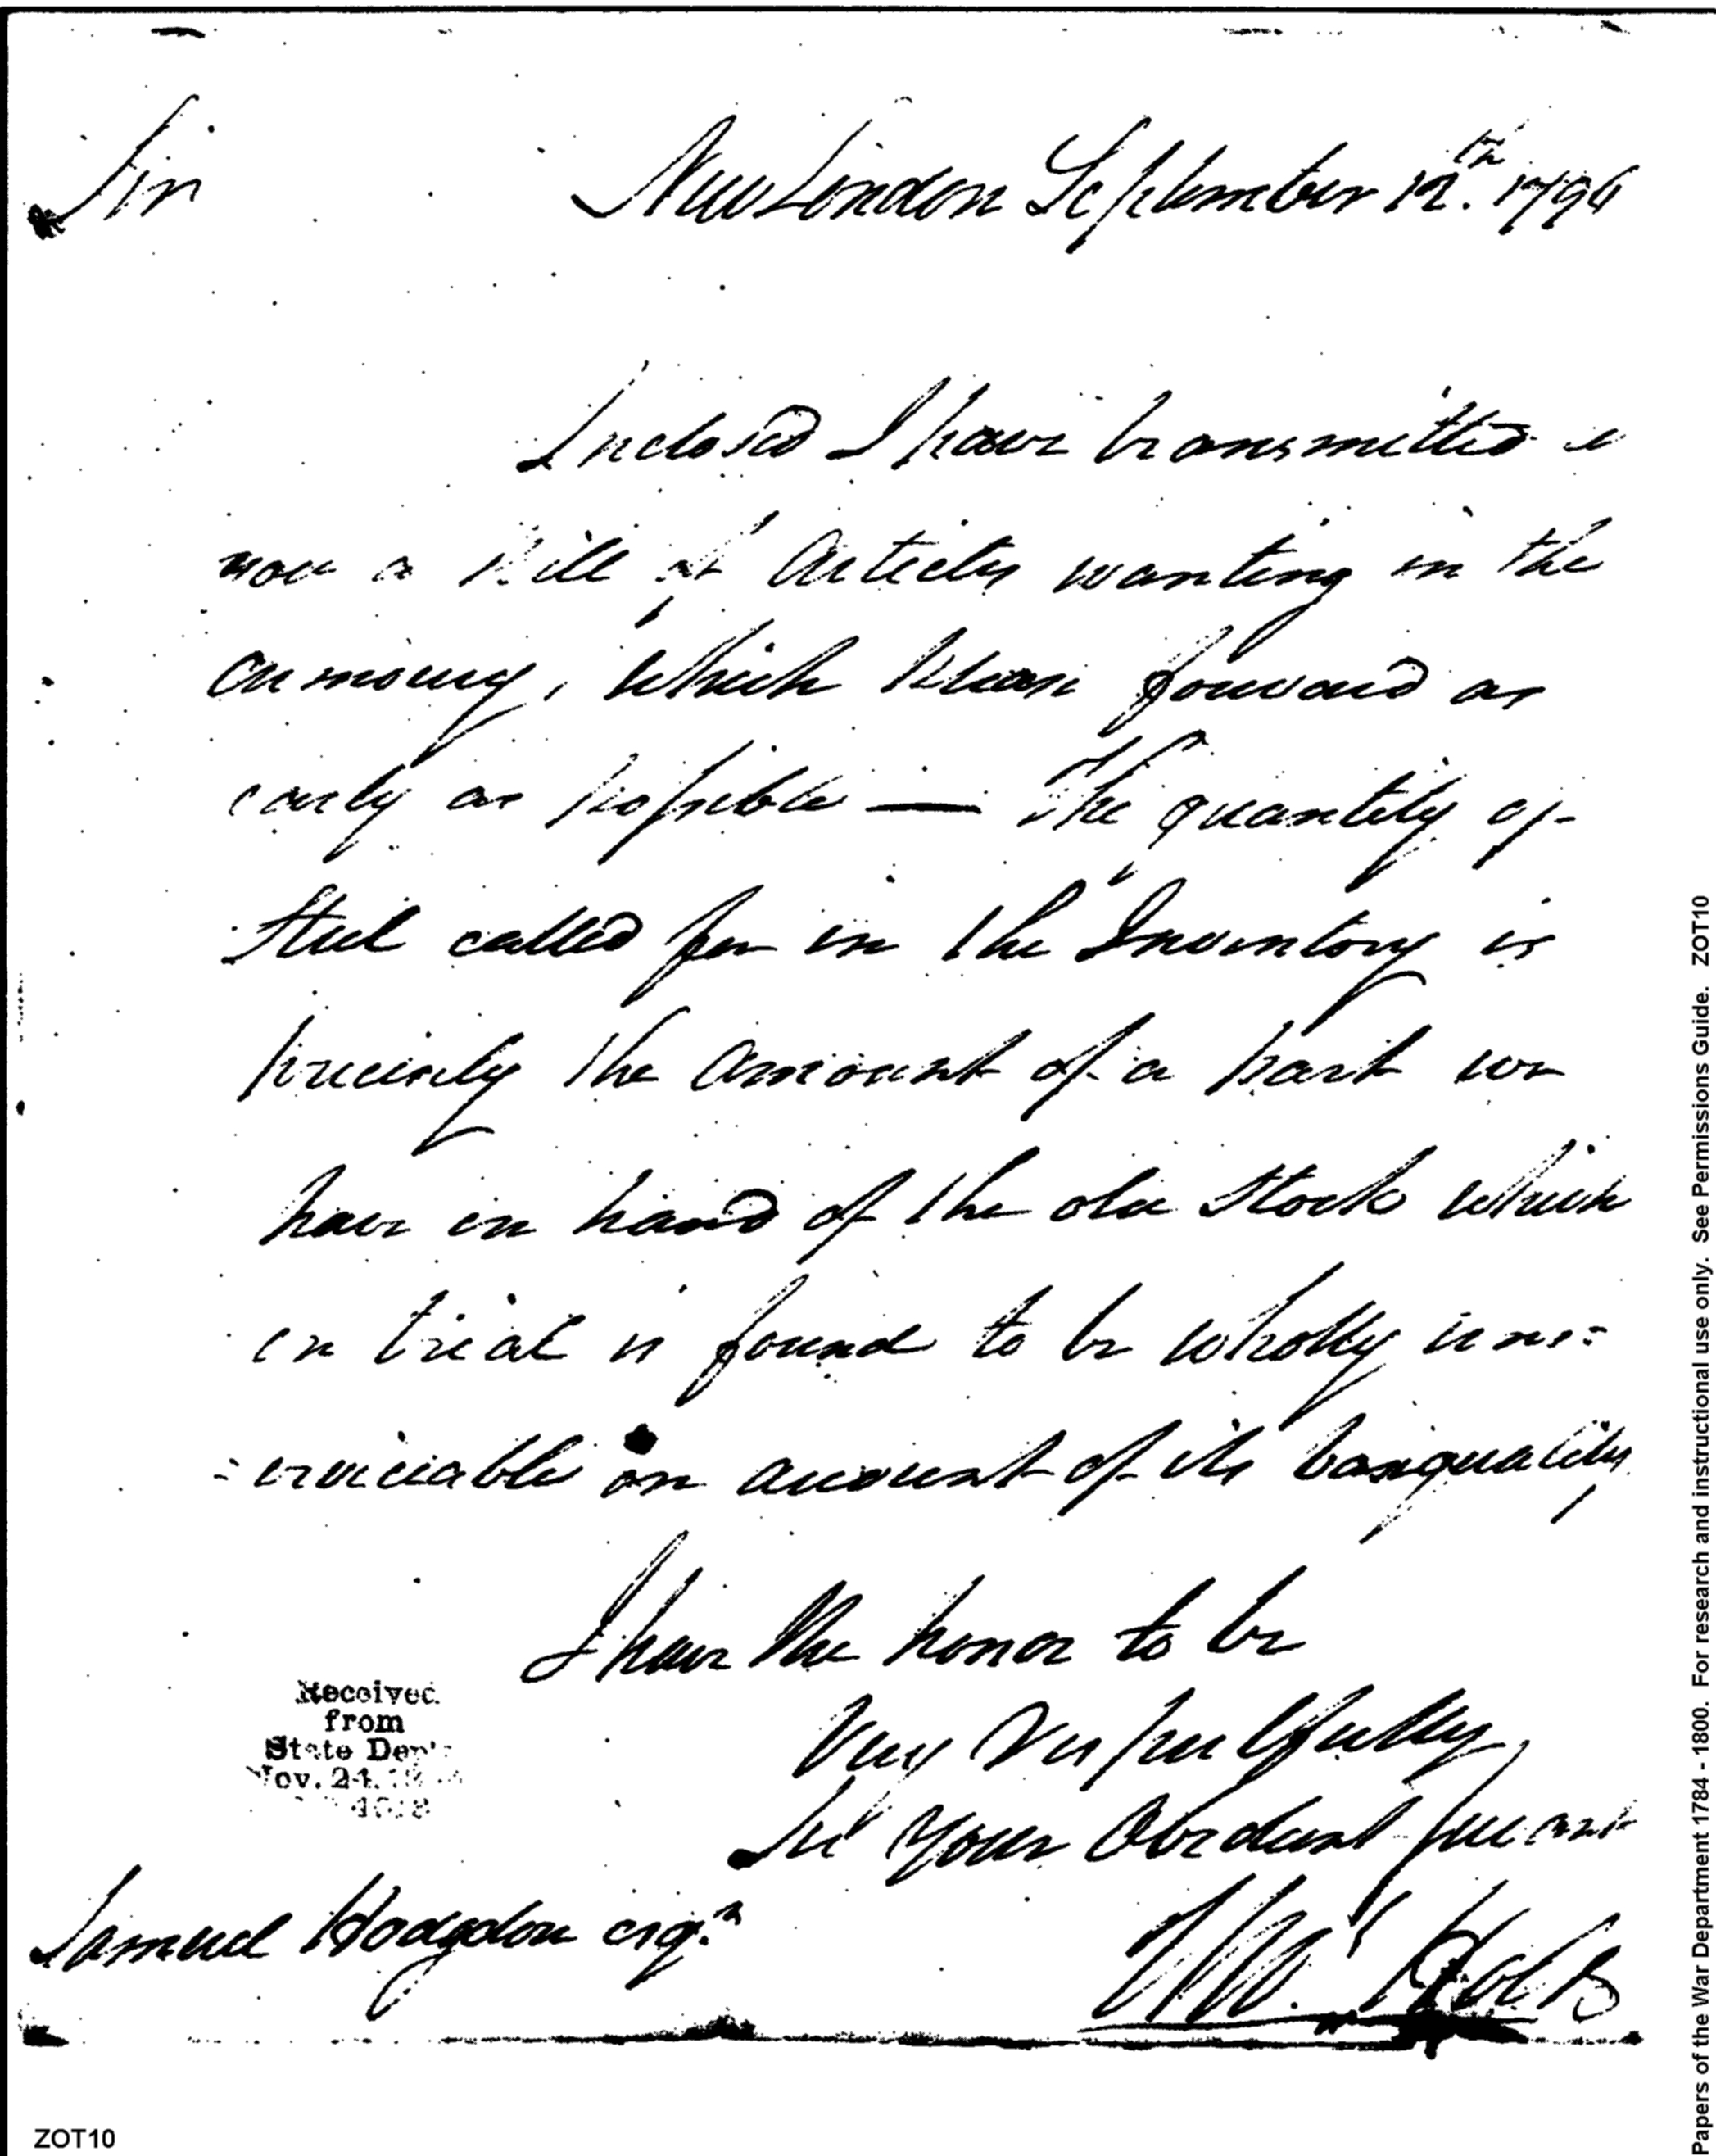 Sir New London September 12th. 1794
Inclosed I have transmitted
you a Bill of Articles wanting in the
Armoury, which please forward as
early as possible — The quantity of
Steel called for in the Inventory is
precisely the amount of a part we
have on hand of the old Stock which
on trial is found to be wholly uns=
=erviciable on account of its bad quality
I have the honor to be
Very Respectfully
Sir Your Obedient Servant
Samuel Hodgdon esqr.
Received
from
State Dep't
Nov. 24.
ZOT10
Papers of the War Department 1784 - 1800. For research and instructional use only. See Permissions Guide. ZOT10